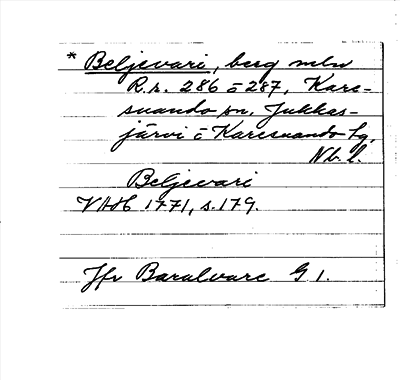 * Beljevari, berg mln
R.r. 286 o 287, Kare-
suando sn, Jukkas-
järvi o Karesuando tg,
Nb. l.
Beljevari
VAH 1771, s. 179.
Jfr Baralvare G 1.